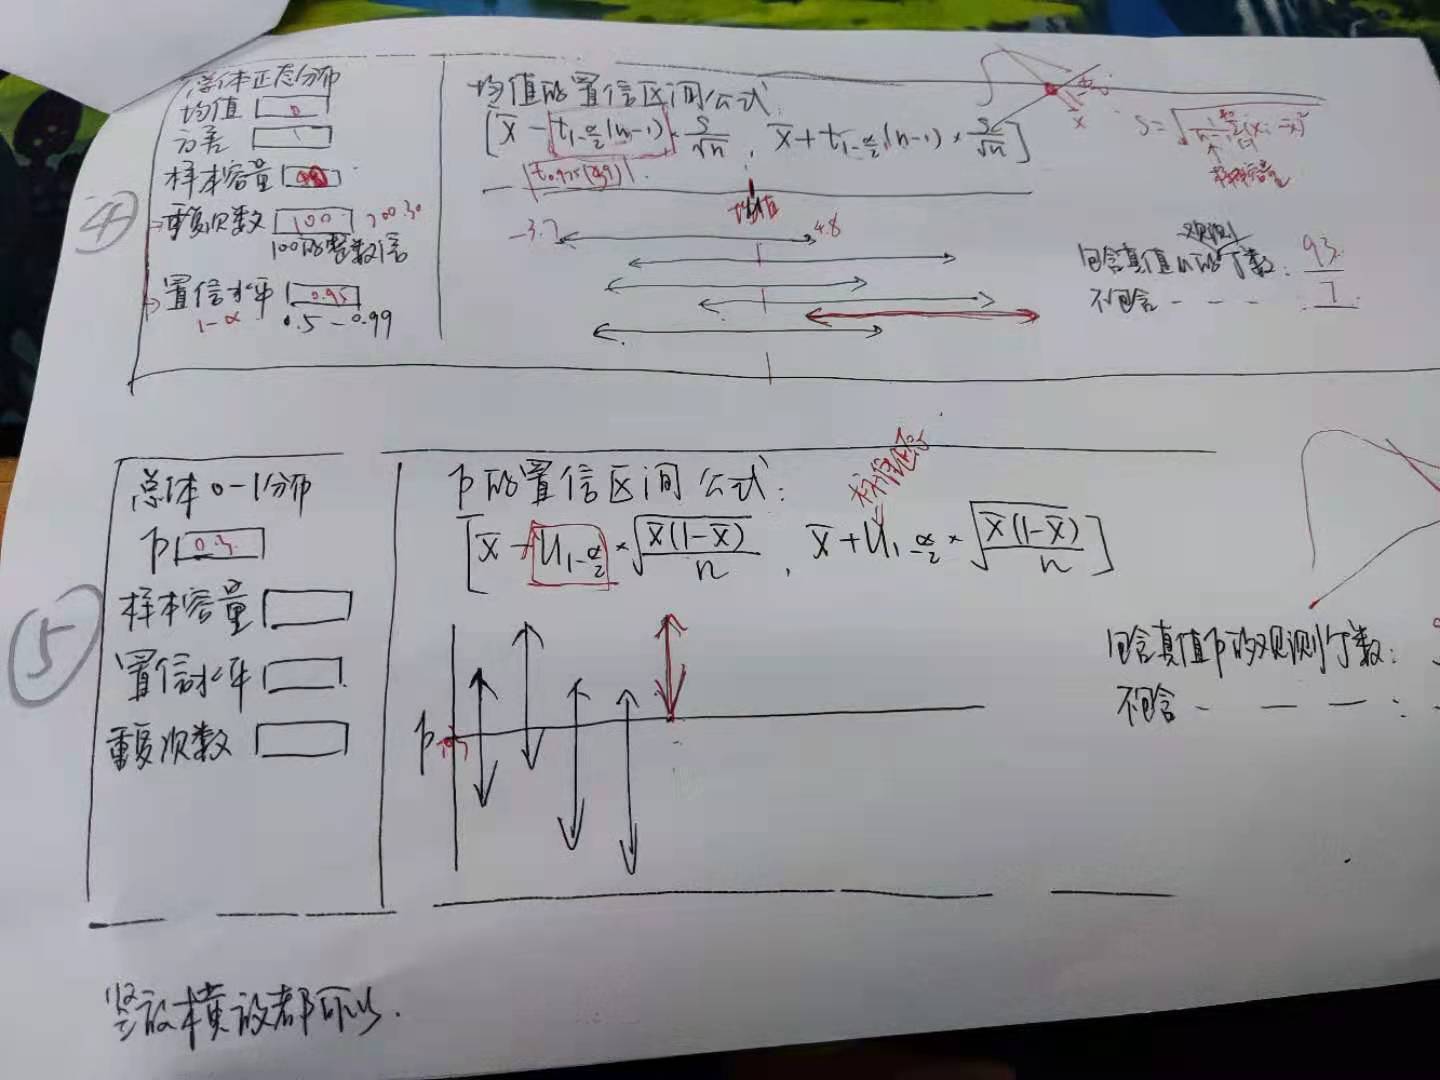 ④
总体正态分布
均值 0
方差 1
样本容量
重复次数 100
100的整数倍
置信水平 0.95
1-α 0.5-0.99
均值的置信区间公式:
[x̄ - t₁₋α/₂(n-1) * S/√n , x̄ + t₁₋α/₂(n-1) * S/√n]
t0.975(39)
S=√(1/(n-1) Σ(xᵢ-x̄)²
样本容量
x̄
-3.7 4.8
观测
包含真值u的个数: 93
不包含 - - - : 7
⑤
总体0-1分布
p 0.3
样本容量
置信水平
重复次数
p的置信区间公式:
[x̄ - U₁₋α/₂ * √(x̄(1-x̄)/n) , x̄ + U₁₋α/₂ * √(x̄(1-x̄)/n)]
p
包含真值p的观测个数:
不包含 - — — :
竖放横放都可以.